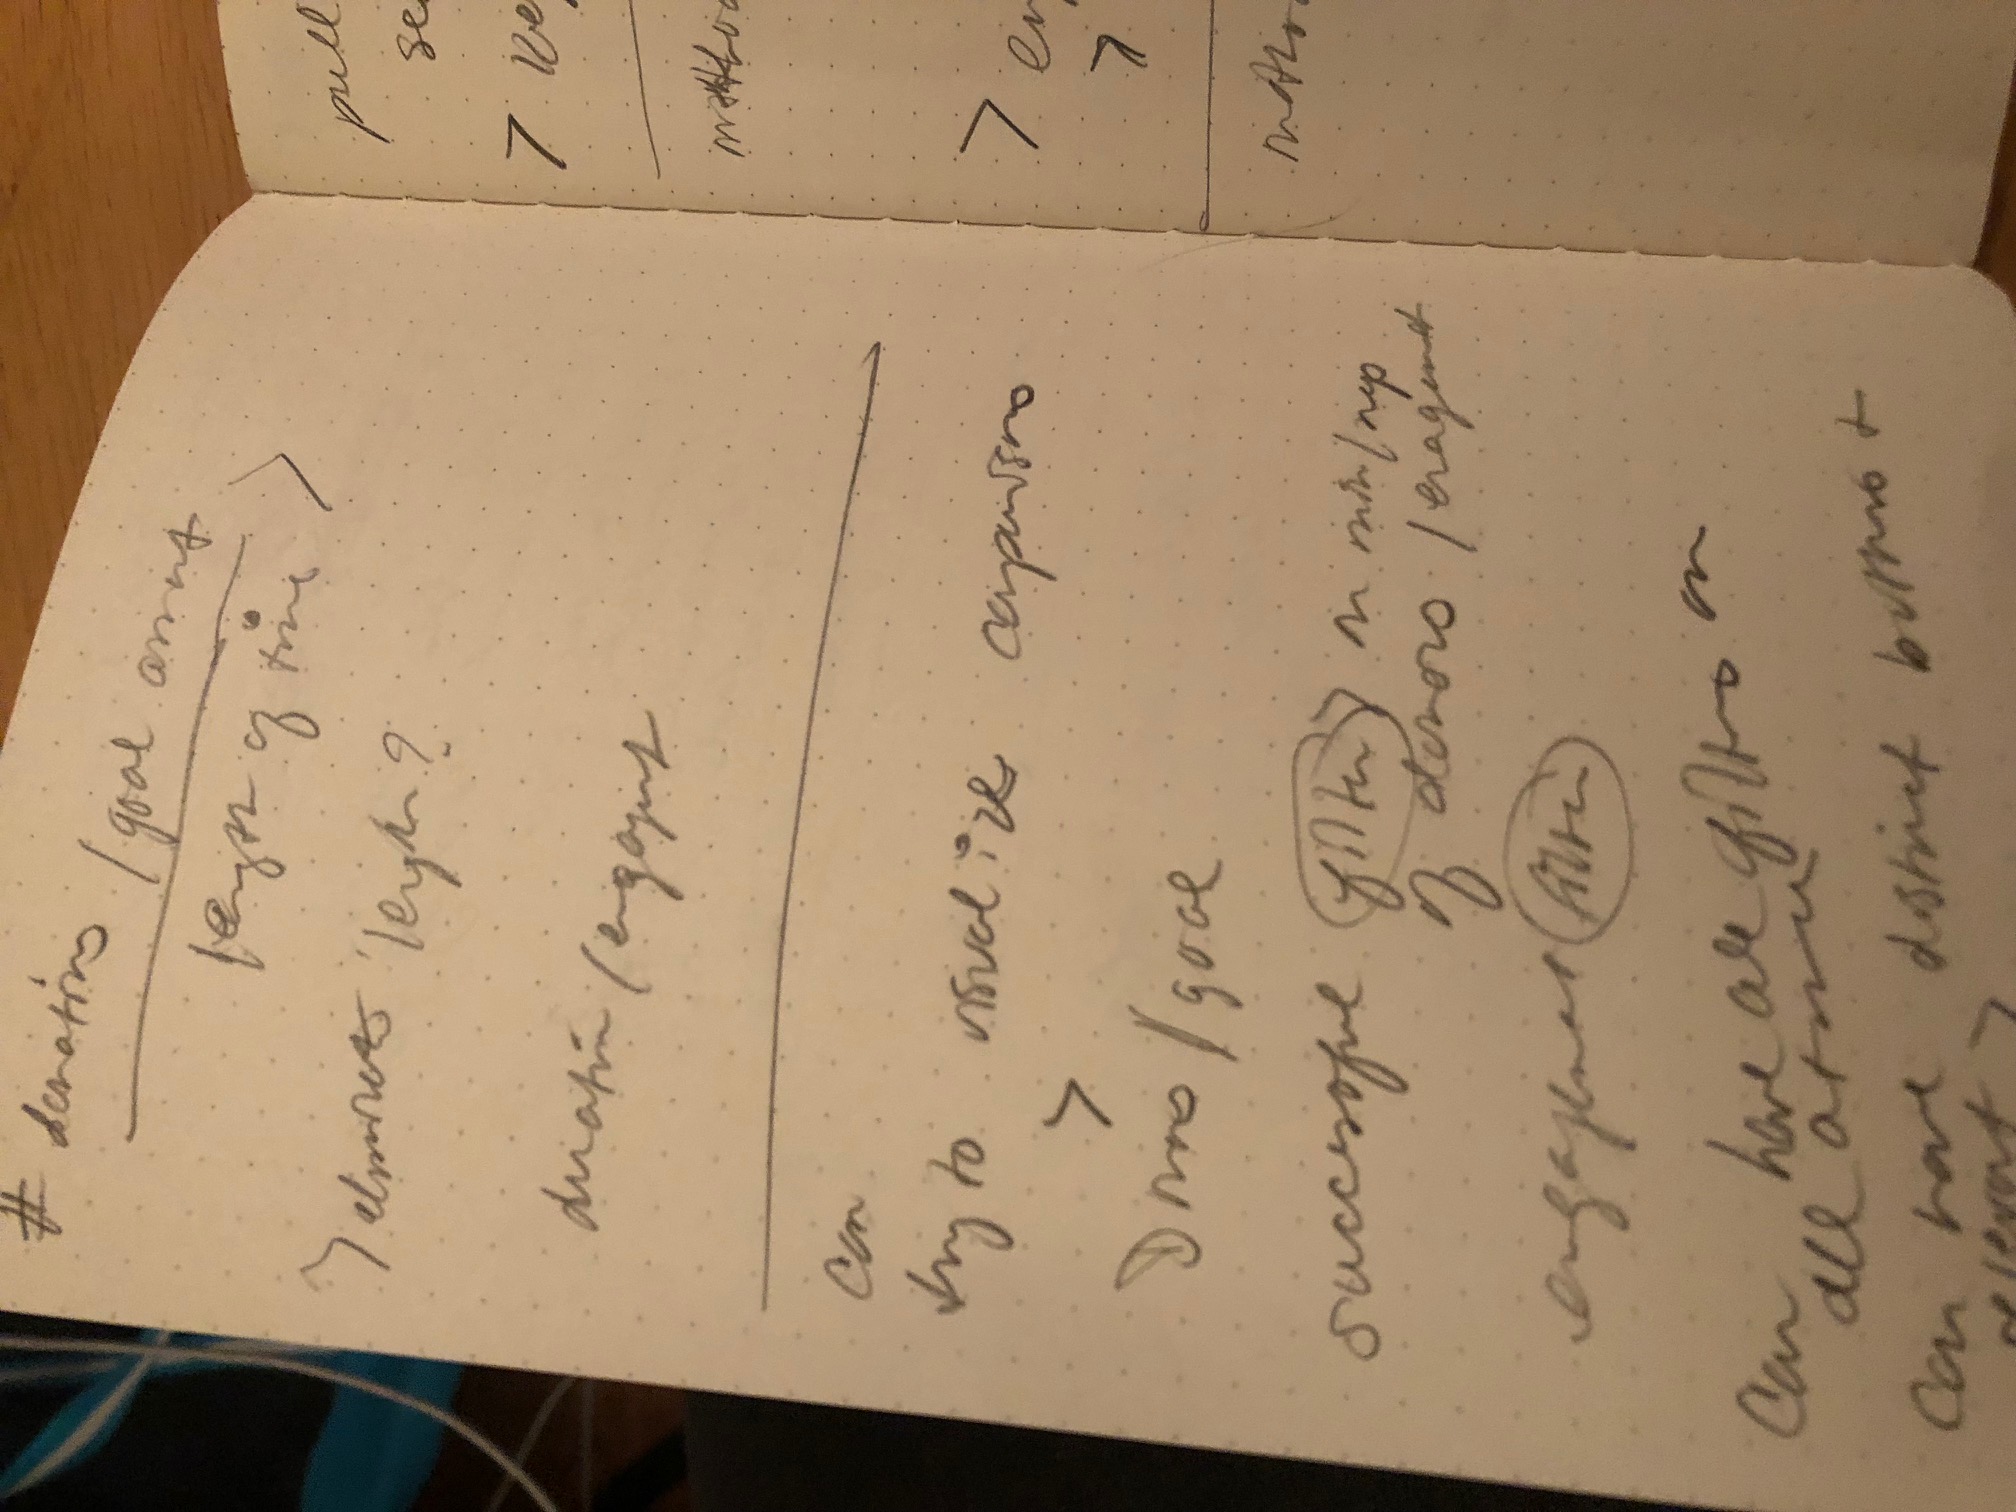 # donations / goal amount
length of time >
> eliminate length?
duration / engagement
can
try to visualize comparisons
>
Donors / goal
successful filter > on min/
of donors / engagement
engagement filter
can have all filters on
all
can have distinct buttons +
relevant >
pull
>
>
>